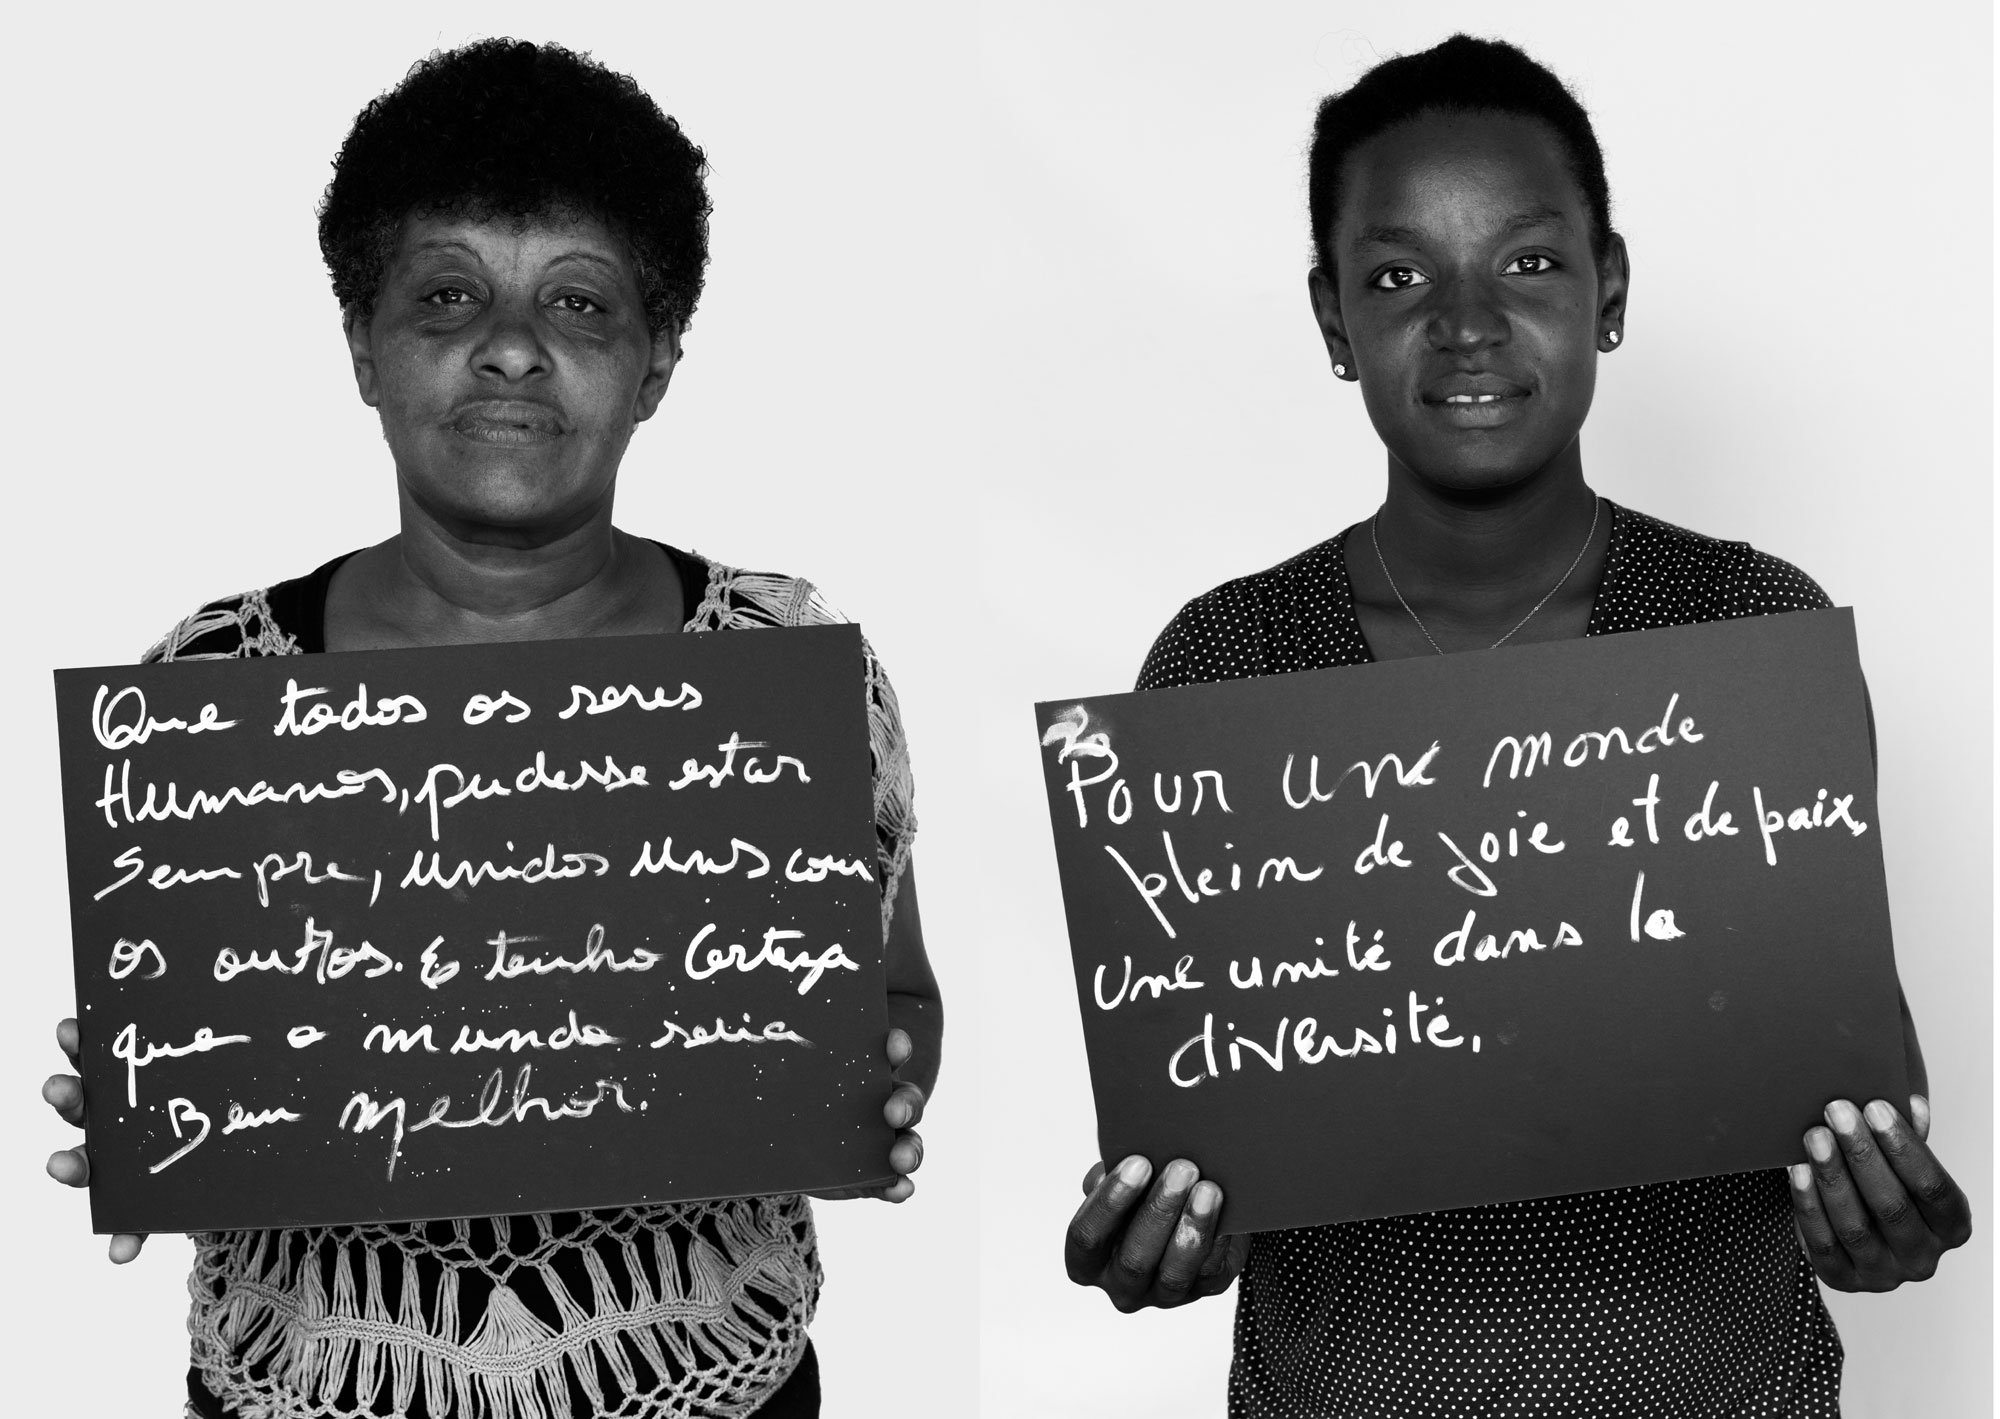 Que todos os seres
Humanos, pudesse estar
Sempre, unidos uns com
os outros. E tenho Certeza
que o mundo seria
Bem Melhor.
Pour une monde
plein de joie et de paix,
Une unité dans la
diversité.